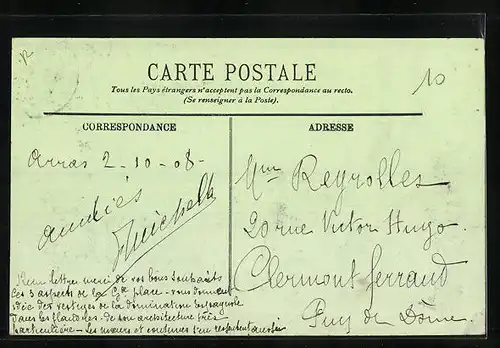 CARTE POSTALE
Tous les Pays étrangers n'acceptent pas la Correspondance au recto.
(Se renseigner à la Poste).
CORRESPONDANCE
ADRESSE
10
Arras 2-10-08-
amitiés
Mme Reyrolles
20 rue Victor Hugo
Clermont ferrand
Puy de Dôme
Reçu lettre merci de vos bons souhaits
Les 3 aspects de la Gde place - vous donnent
idée des vestiges de la domination Espagnole
dans les flandres - de son architecture très
particulière - Les mœurs et coutumes s'en ressentent aussi